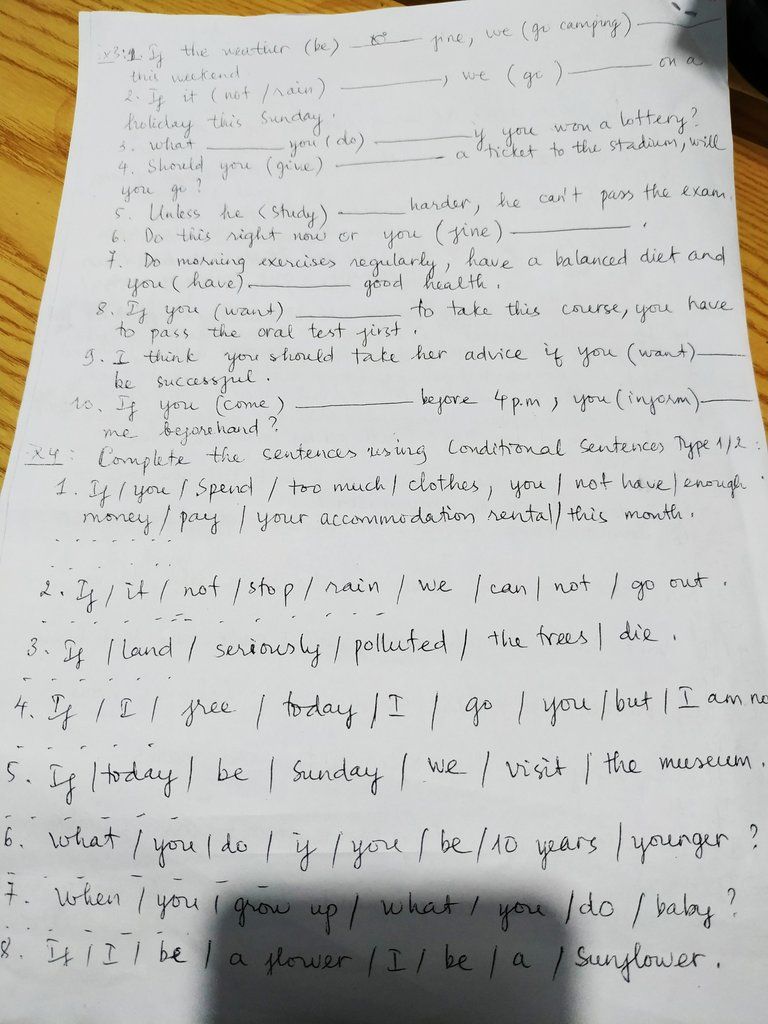 Ex3: 1. If the weather (be) ____ fine, we (go camping) ____
this weekend
2. If it (not / rain) ____, we (go) ____ on a
holiday this Sunday.
3. What ____ you (do) ____ if you won a lottery?
4. Should you (give) ____ a ticket to the stadium, will
you go?
5. Unless he (study) ____ harder, he can't pass the exam.
6. Do this right now or you (fine) ____.
7. Do morning exercises regularly, have a balanced diet and
you (have) ____ good health.
8. If you (want) ____ to take this course, you have
to pass the oral test first.
9. I think you should take her advice if you (want) ____
be successful.
10. If you (come) ____ before 4 p.m, you (inform) ____
me beforehand?
Ex4: Complete the sentences using Conditional Sentences Type 1/2:
1. If / you / spend / too much / clothes, you / not have / enough
money / pay / your accommodation rental / this month.
2. If / it / not / stop / rain / we / can / not / go out.
3. If / land / seriously / polluted / the trees / die.
4. If / I / free / today / I / go / you / but / I am no
5. If / today / be / Sunday / we / visit / the museum.
6. What / you / do / if / you / be / 10 years / younger?
7. When / you / grow up / what / you / do / baby?
8. If / I / be / a flower / I / be / a / Sunflower.